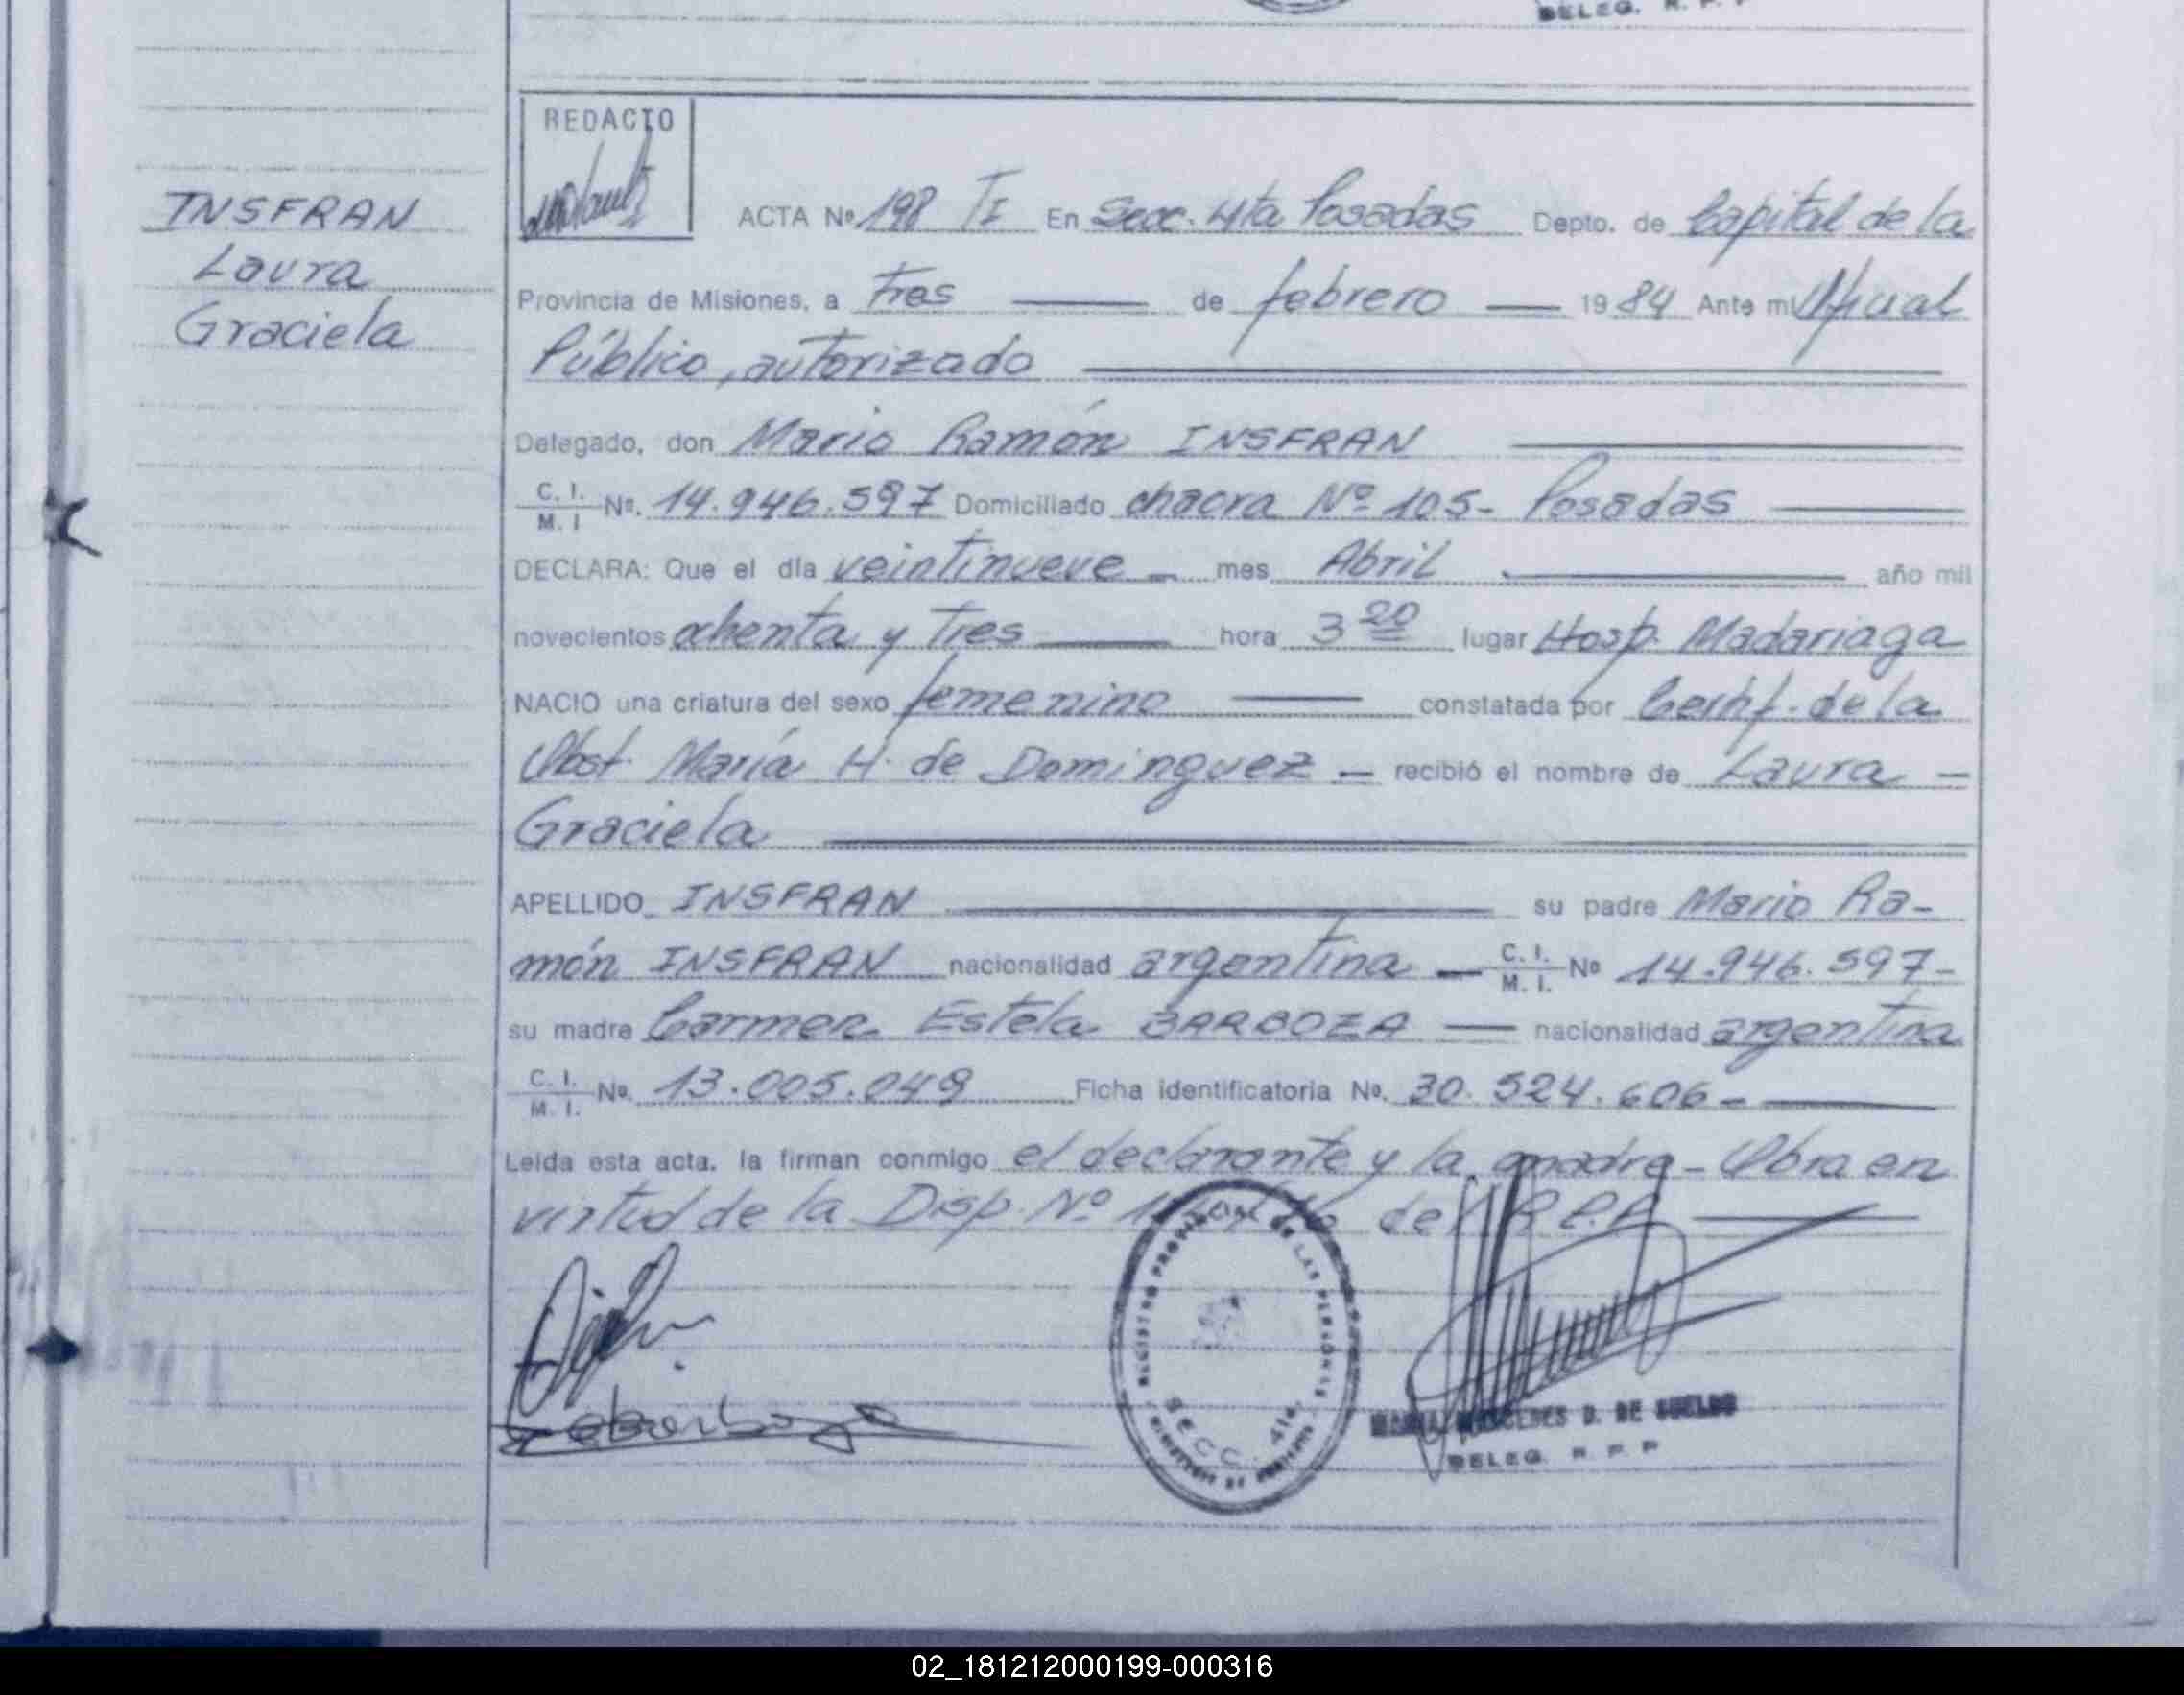 DELEG. R. P. P
REDACTO
INSFRAN
Laura
Graciela
ACTA Nº 198 TI En Secc. 4ta Posadas Depto. de Capital de la
Provincia de Misiones, a tres de febrero 1984 Ante mi Oficial
Público, autorizado
Delegado, don Mario Ramón INSFRAN
C. I. M. I Nº. 14.946.597 Domiciliado chacra Nº 105- Posadas
DECLARA: Que el día veintinueve - mes Abril año mil
novecientos ochenta y Tres hora 3 20 lugar Hosp. Madariaga
NACIO una criatura del sexo femenino constatada por Certif. de la
Obst. María H. de Dominguez - recibió el nombre de Laura -
Graciela
APELLIDO INSFRAN su padre Mario Ra-
món INSFRAN nacionalidad argentina - C. I. M. I. Nº 14.946.597-
su madre Carmen Estela BARBOZA nacionalidad argentina
C. I. M. I. Nº. 13.005.049 Ficha identificatoria Nº. 30.524.606-
Leída esta acta, la firman conmigo el declarante y la madre - Obra en
virtud de la Disp. Nº del R.P.P.
REGISTRO PROVINCIAL de LAS PERSONAS
SECC. 4ta.
MARIA MERCEDES D. DE SUELDO
DELEG. R. P. P
02_181212000199-000316